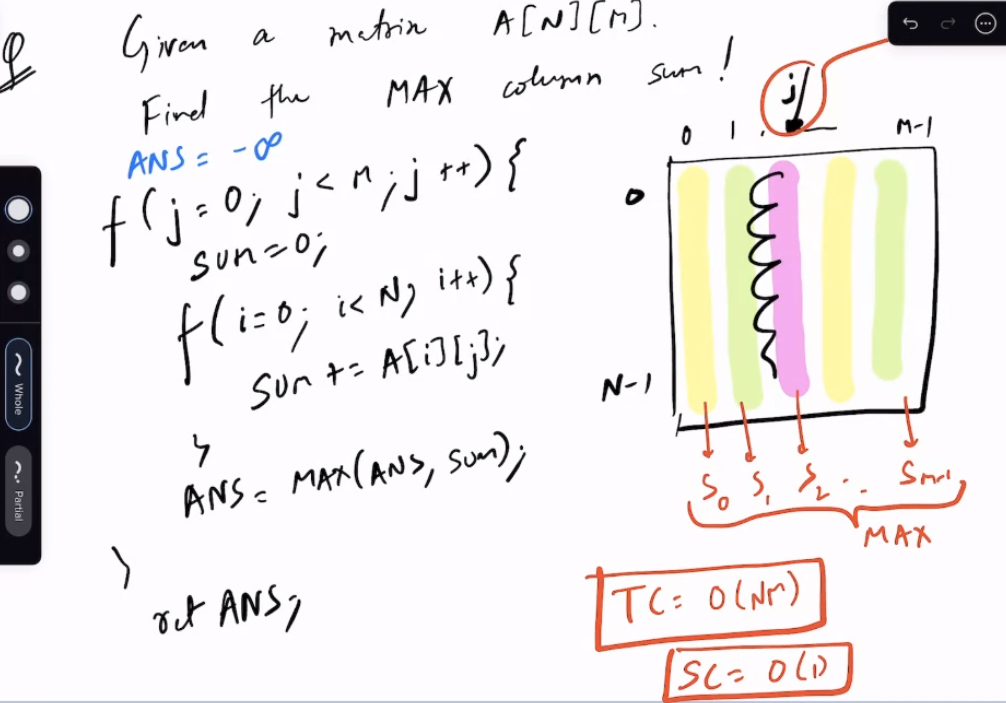 Q
Given a matrix A[N][M].
Find the MAX column sum!
ANS = -∞
f(j=0; j<M; j++) {
sum=0;
f(i=0; i<N; i++) {
sum += A[i][j];
}
ANS = MAX(ANS, sum);
}
ret ANS;
j
0 1 . M-1
0
N-1
S0 S1 S2 .. SM-1
MAX
TC = O(NM)
SC = O(1)
Whole
Partial